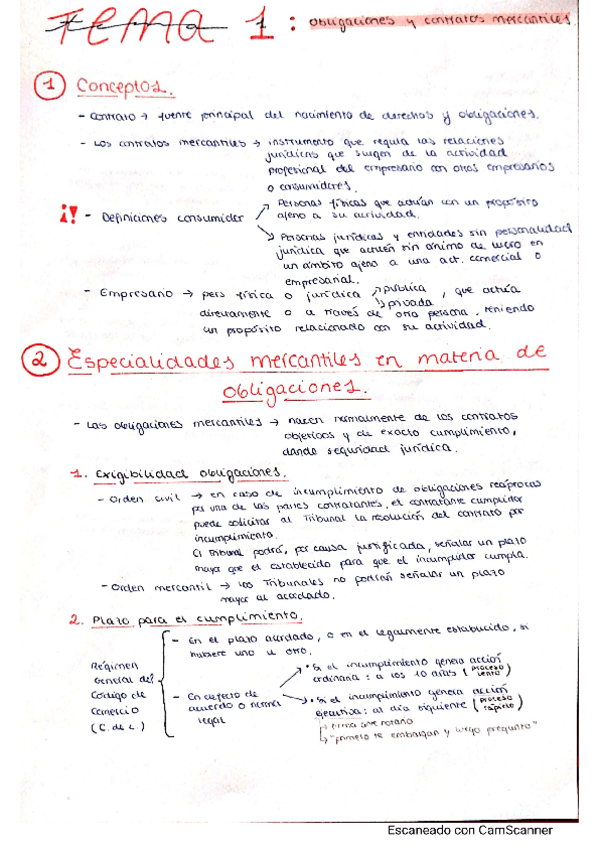 TEMA 1: obligaciones y contratos mercantiles
1 Conceptos.
- Contrato → fuente principal del nacimiento de derechos y obligaciones.
- Los contratos mercantiles → instrumento que regula las relaciones
jurídicas que surgen de la actividad
profesional del empresario con otros empresarios
o consumidores.
¡! - Definiciones consumidor
↗ Personas físicas que actúan con un propósito
ajeno a su actividad.
↘ Personas jurídicas y entidades sin personalidad
jurídica que actúen sin ánimo de lucro en
un ámbito ajeno a una act. comercial o
empresarial.
- Empresario → pers física o jurídica ↗ pública, que actúa
↘ privada
directamente o a través de otra persona, teniendo
un propósito relacionado con su actividad.
2 Especialidades mercantiles en materia de
obligaciones.
- Las obligaciones mercantiles → nacen normalmente de los contratos
objetivos y de exacto cumplimiento,
dando seguridad jurídica.
1. Exigibilidad obligaciones.
- Orden civil → en caso de incumplimiento de obligaciones recíprocas
por una de las partes contratantes, el contratante cumplidor
puede solicitar al Tribunal la resolución del contrato por
incumplimiento.
El Tribunal podrá, por causa justificada, señalar un plazo
mayor que el establecido para que el incumplidor cumpla.
- Orden mercantil → los Tribunales no podrán señalar un plazo
mayor al acordado.
2. Plazo para el cumplimiento.
Régimen
General del
Código de
Comercio
(C. de C.)
- En el plazo acordado, o en el legalmente establecido, si
hubiere uno u otro.
- En defecto de
acuerdo o norma
legal
• Si el incumplimiento genera acción
ordinaria: a los 10 días (proceso
lento)
• Si el incumplimiento genera acción
ejecutiva: al día siguiente (proceso
rápido)
↳ firma ante notario
↳ "primero te embargan y luego pregunto"
Escaneado con CamScanner